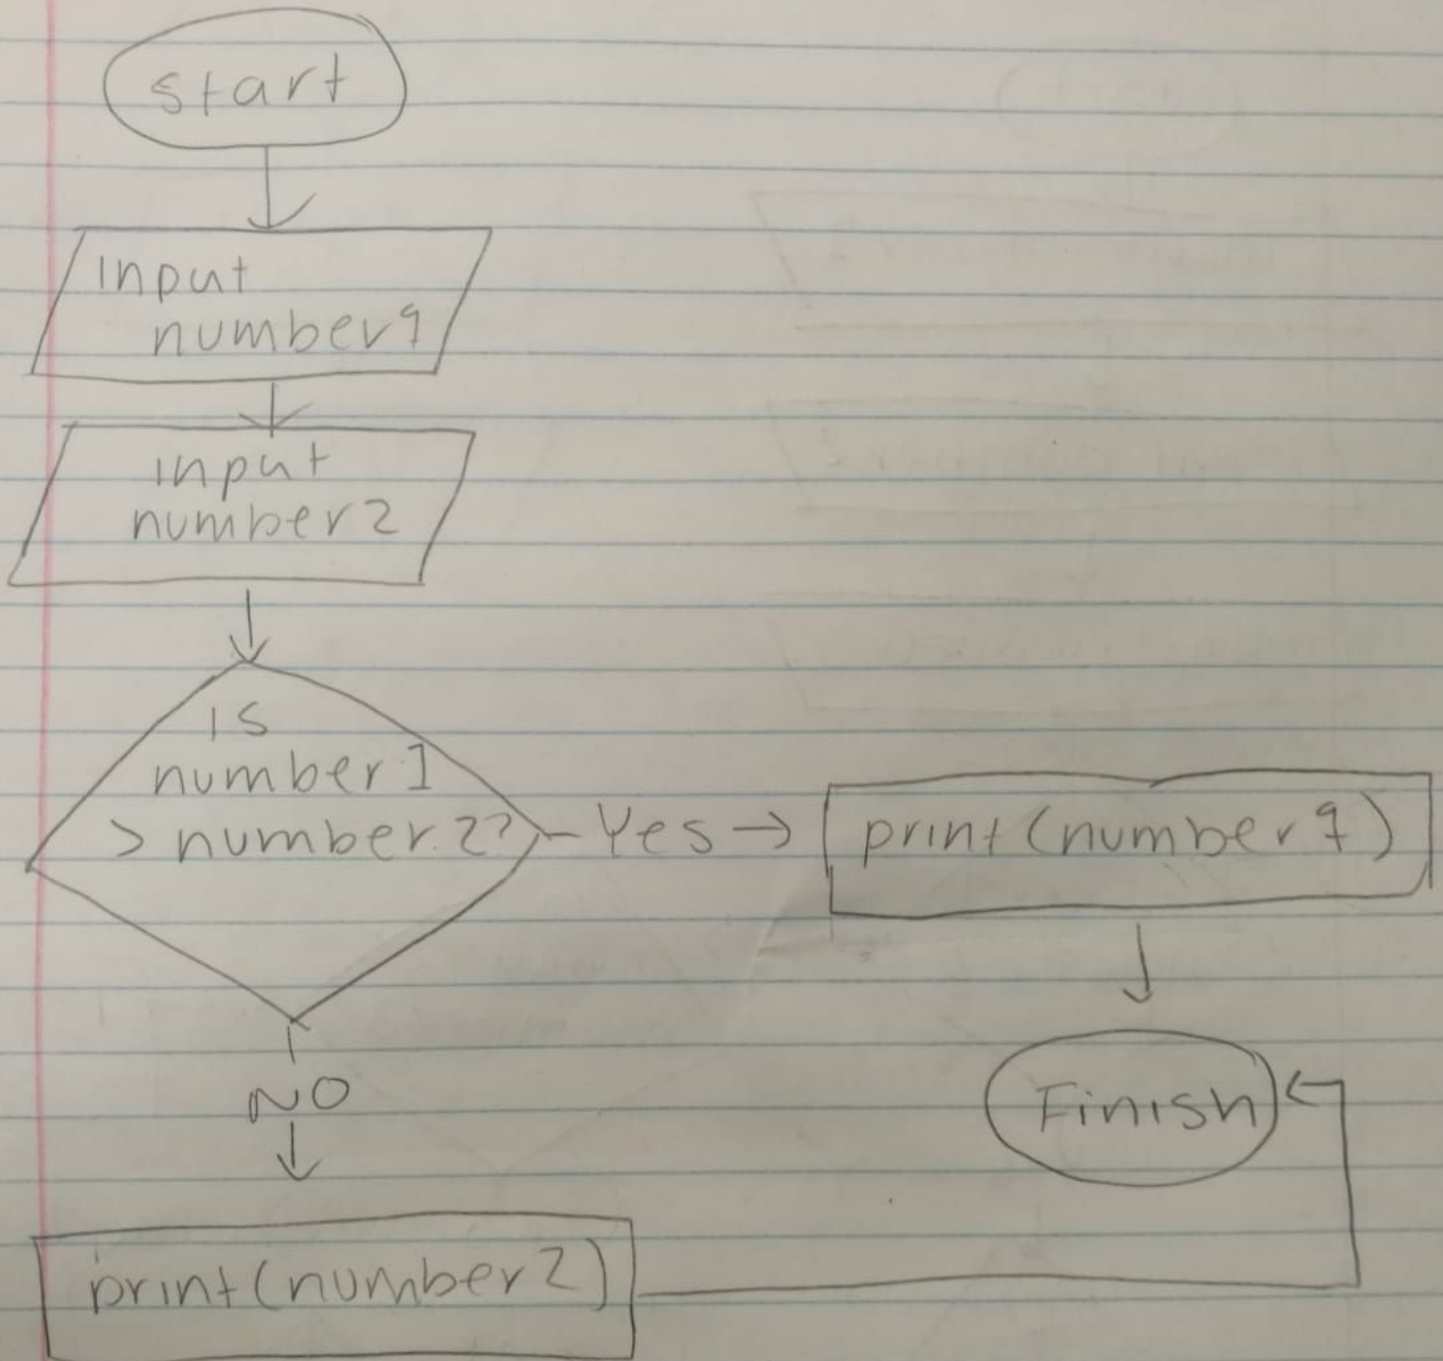 start
input
number1
input
number2
is
number1
> number2?
Yes
print(number1)
Finish
NO
print(number2)